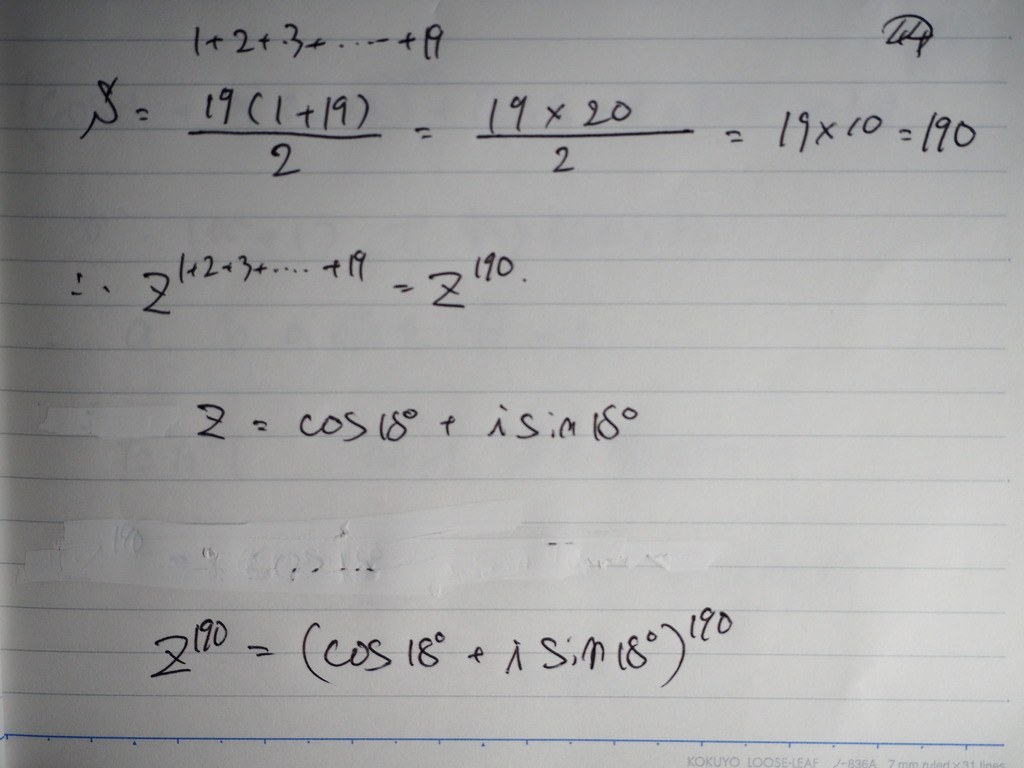 1+2+3+.....+19
S = 19(1+19)/2 = 19×20/2 = 19×10 = 190
∴ Z^1+2+3+.....+19 = Z^190.
Z = cos18° + i sin18°
Z^190 = (cos18° + i sin18°)^190
KOKUYO LOOSE-LEAF ノ-836A 7 mm ruled×31 lines